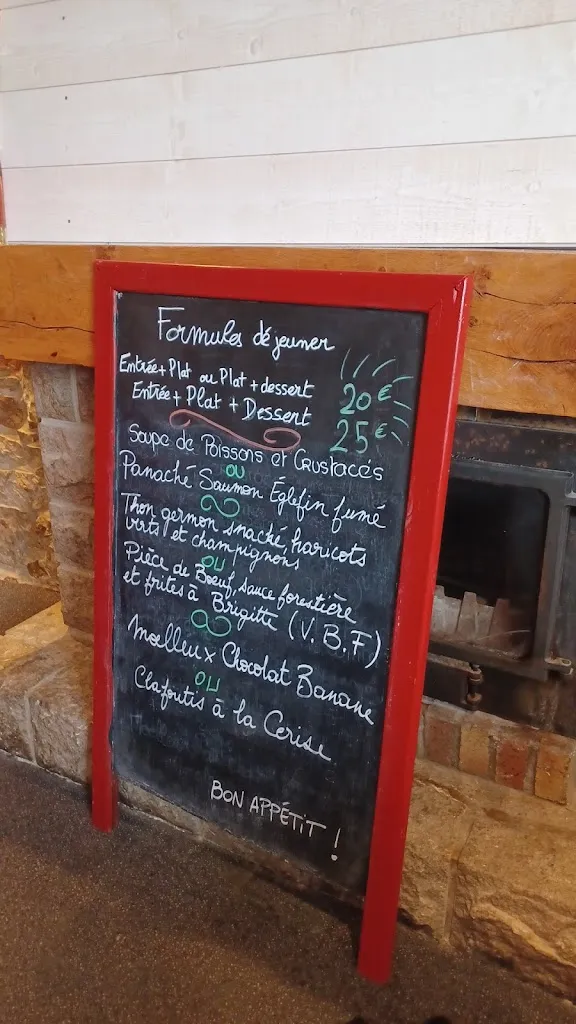 Formules déjeuner
Entrée+Plat ou Plat+dessert 20€
Entrée+Plat+Dessert 25€
Soupe de Poissons et Crustacés
ou
Panaché Saumon Églefin fumé
Thon germon snacké, haricots
verts et champignons
ou
Pièce de Boeuf, sauce forestière
et frites à Brigitte (V.B.F)
Moelleux Chocolat Banane
ou
Clafoutis à la Cerise
BON APPÉTIT !